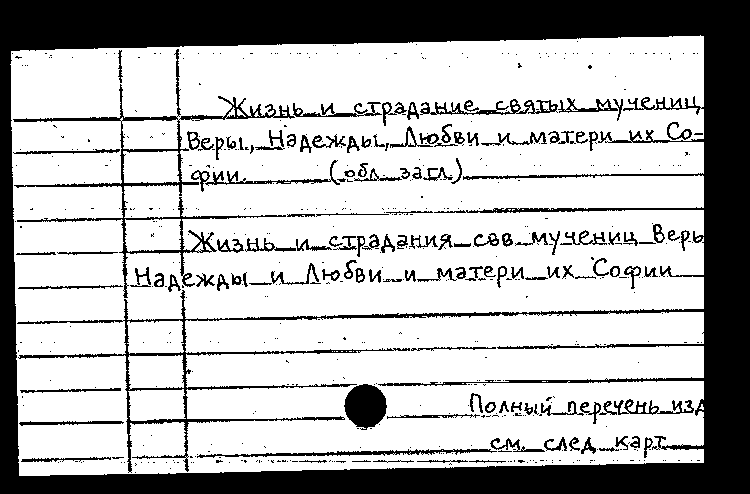 Жизнь и страдание святых мучениц
Веры, Надежды, Любви и матери их Со-
фии. (обл. загл.)
Жизнь и страдания свв. мучениц Веры
Надежды и Любви и матери их Софии
Полный перечень изд
см. след. карт.